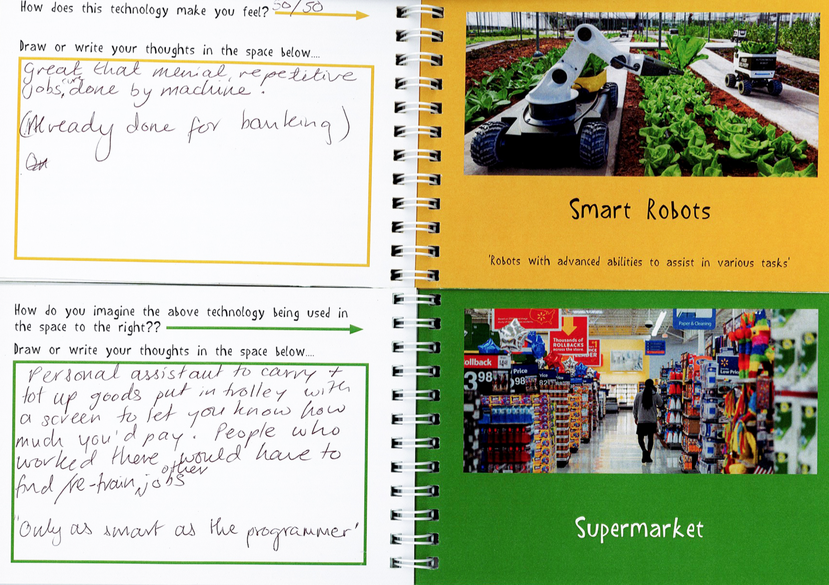 How does this technology make you feel? 50/50
Draw or write your thoughts in the space below....
Great that menial, repetitive
jobs, are done by machine.
(Already done for banking)
Smart Robots
'Robots with advanced abilities to assist in various tasks'
How do you imagine the above technology being used in
the space to the right??
Draw or write your thoughts in the space below....
Personal assistant to carry +
tot up goods put in trolley with
a screen to let you know how
much you'd pay. People who
worked there would have to
find/re-train, other jobs
'Only as smart as the programmer'
Thousands of
ROLLBACKS
Rollback
3 98
Price
Paper & Cleaning
Low Price
Supermarket